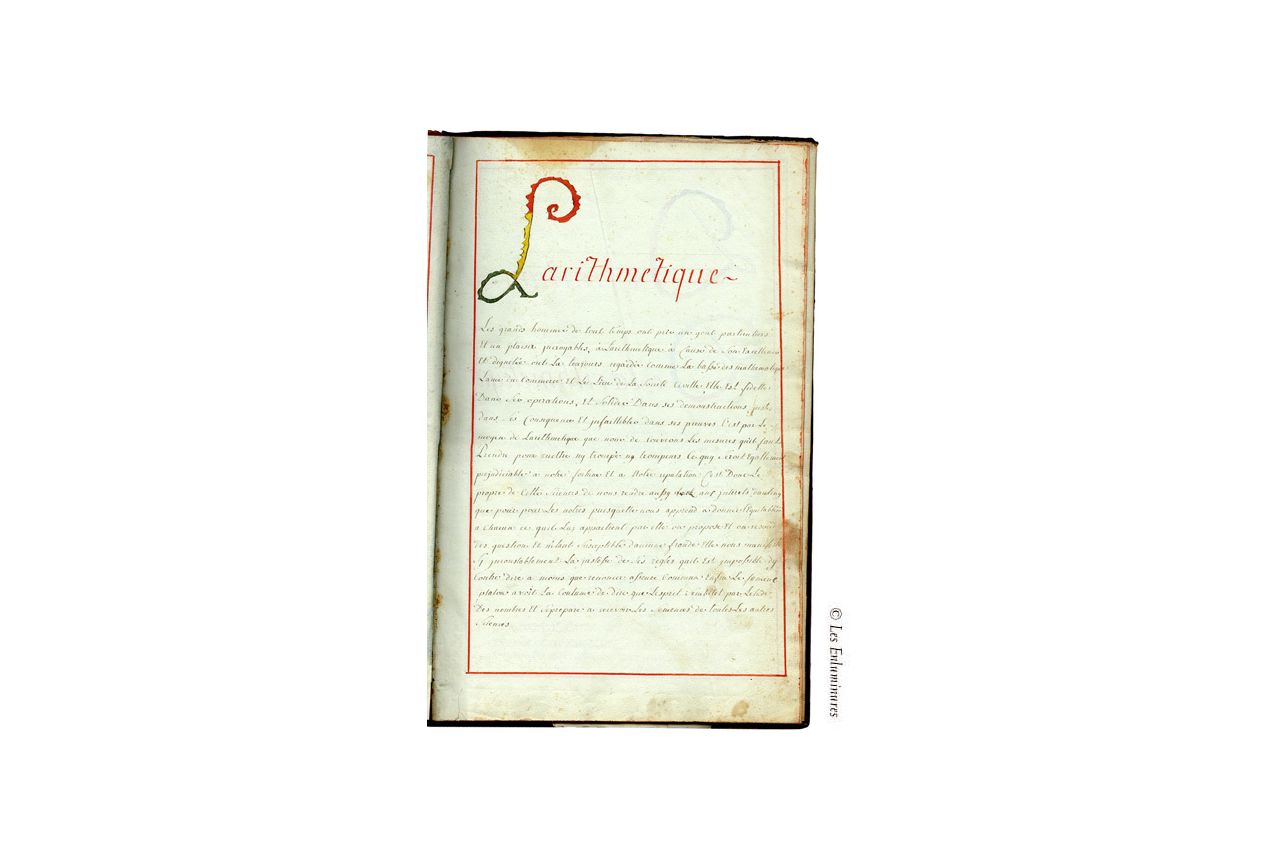 Larithmetique~
Les grands homme de tout temps ont pris un gout particuliers
Et un plaisir incroyables, a Larithmetique a Cause de Son Excellence
Et dignetée ont La toujours regardée Comme La basse des mathematique
Lame du Commerce Et Le Lien de La Societé Civille, Elle Est fidelle
Dans Ses operations, Et Solides Dans ses demonstructions, juste
dans Ses Consequence Et jnfaillibles dans ses preuves C'est par Le
moyen de Larithmetique que nous de couvrons Les mesures quil faut
Prendre pour n'estre ny trompé ny trompeurs Ce quy Seroit Egallement
prejudiciable a notre fortune Et a Notre reputation C'est Donc Le
propre de Cette Sciences de nous rendre aussy aux jnterets dautruy
que pour pour Les notres puisquelle nous apprend a donner
a Chacun ce quil Luy appartient par elle on propose Et on resout
des question Et n'étant Susceptible daucune fraude Elle nous manifeste
Sy jnconstablement La justesse de Ses regles quil Est jmpossible dy
Contre dire a moins que renoncer Commun Enfin Le
platon avoit La Coutume de dire que Lesprit par
Des nombres Et Seprepare a recevoir Les Semences de toutes Les autres
Sciences
© Les Enluminures